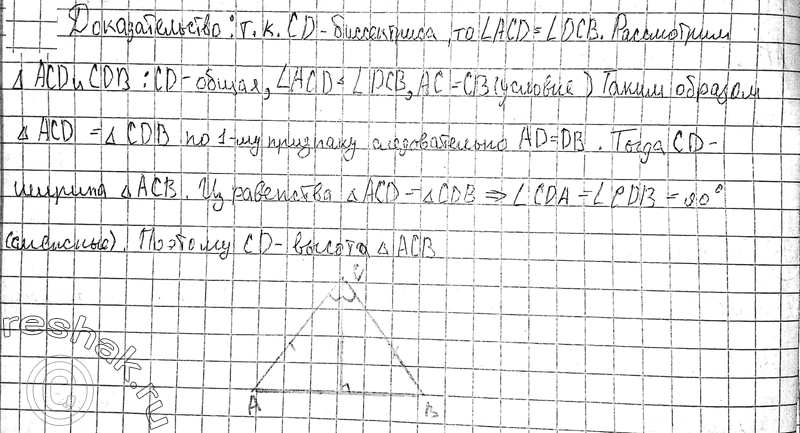 Доказательство: т.к. CD-биссектриса, то ∠ACD=∠DCB. Рассмотрим
△ACD и CDB: CD-общая, ∠ACD=∠DCB, AC=CB(условие) Таким образом
△ACD=△CDB по 1-му признаку следовательно AD=DB. Тогда CD-
△ACB. Из равенства △ACD=△CDB ⇒ ∠CDA=∠CDB=90°
(смежные). Поэтому CD-высота △ACB
C
A
B
reshak.ru